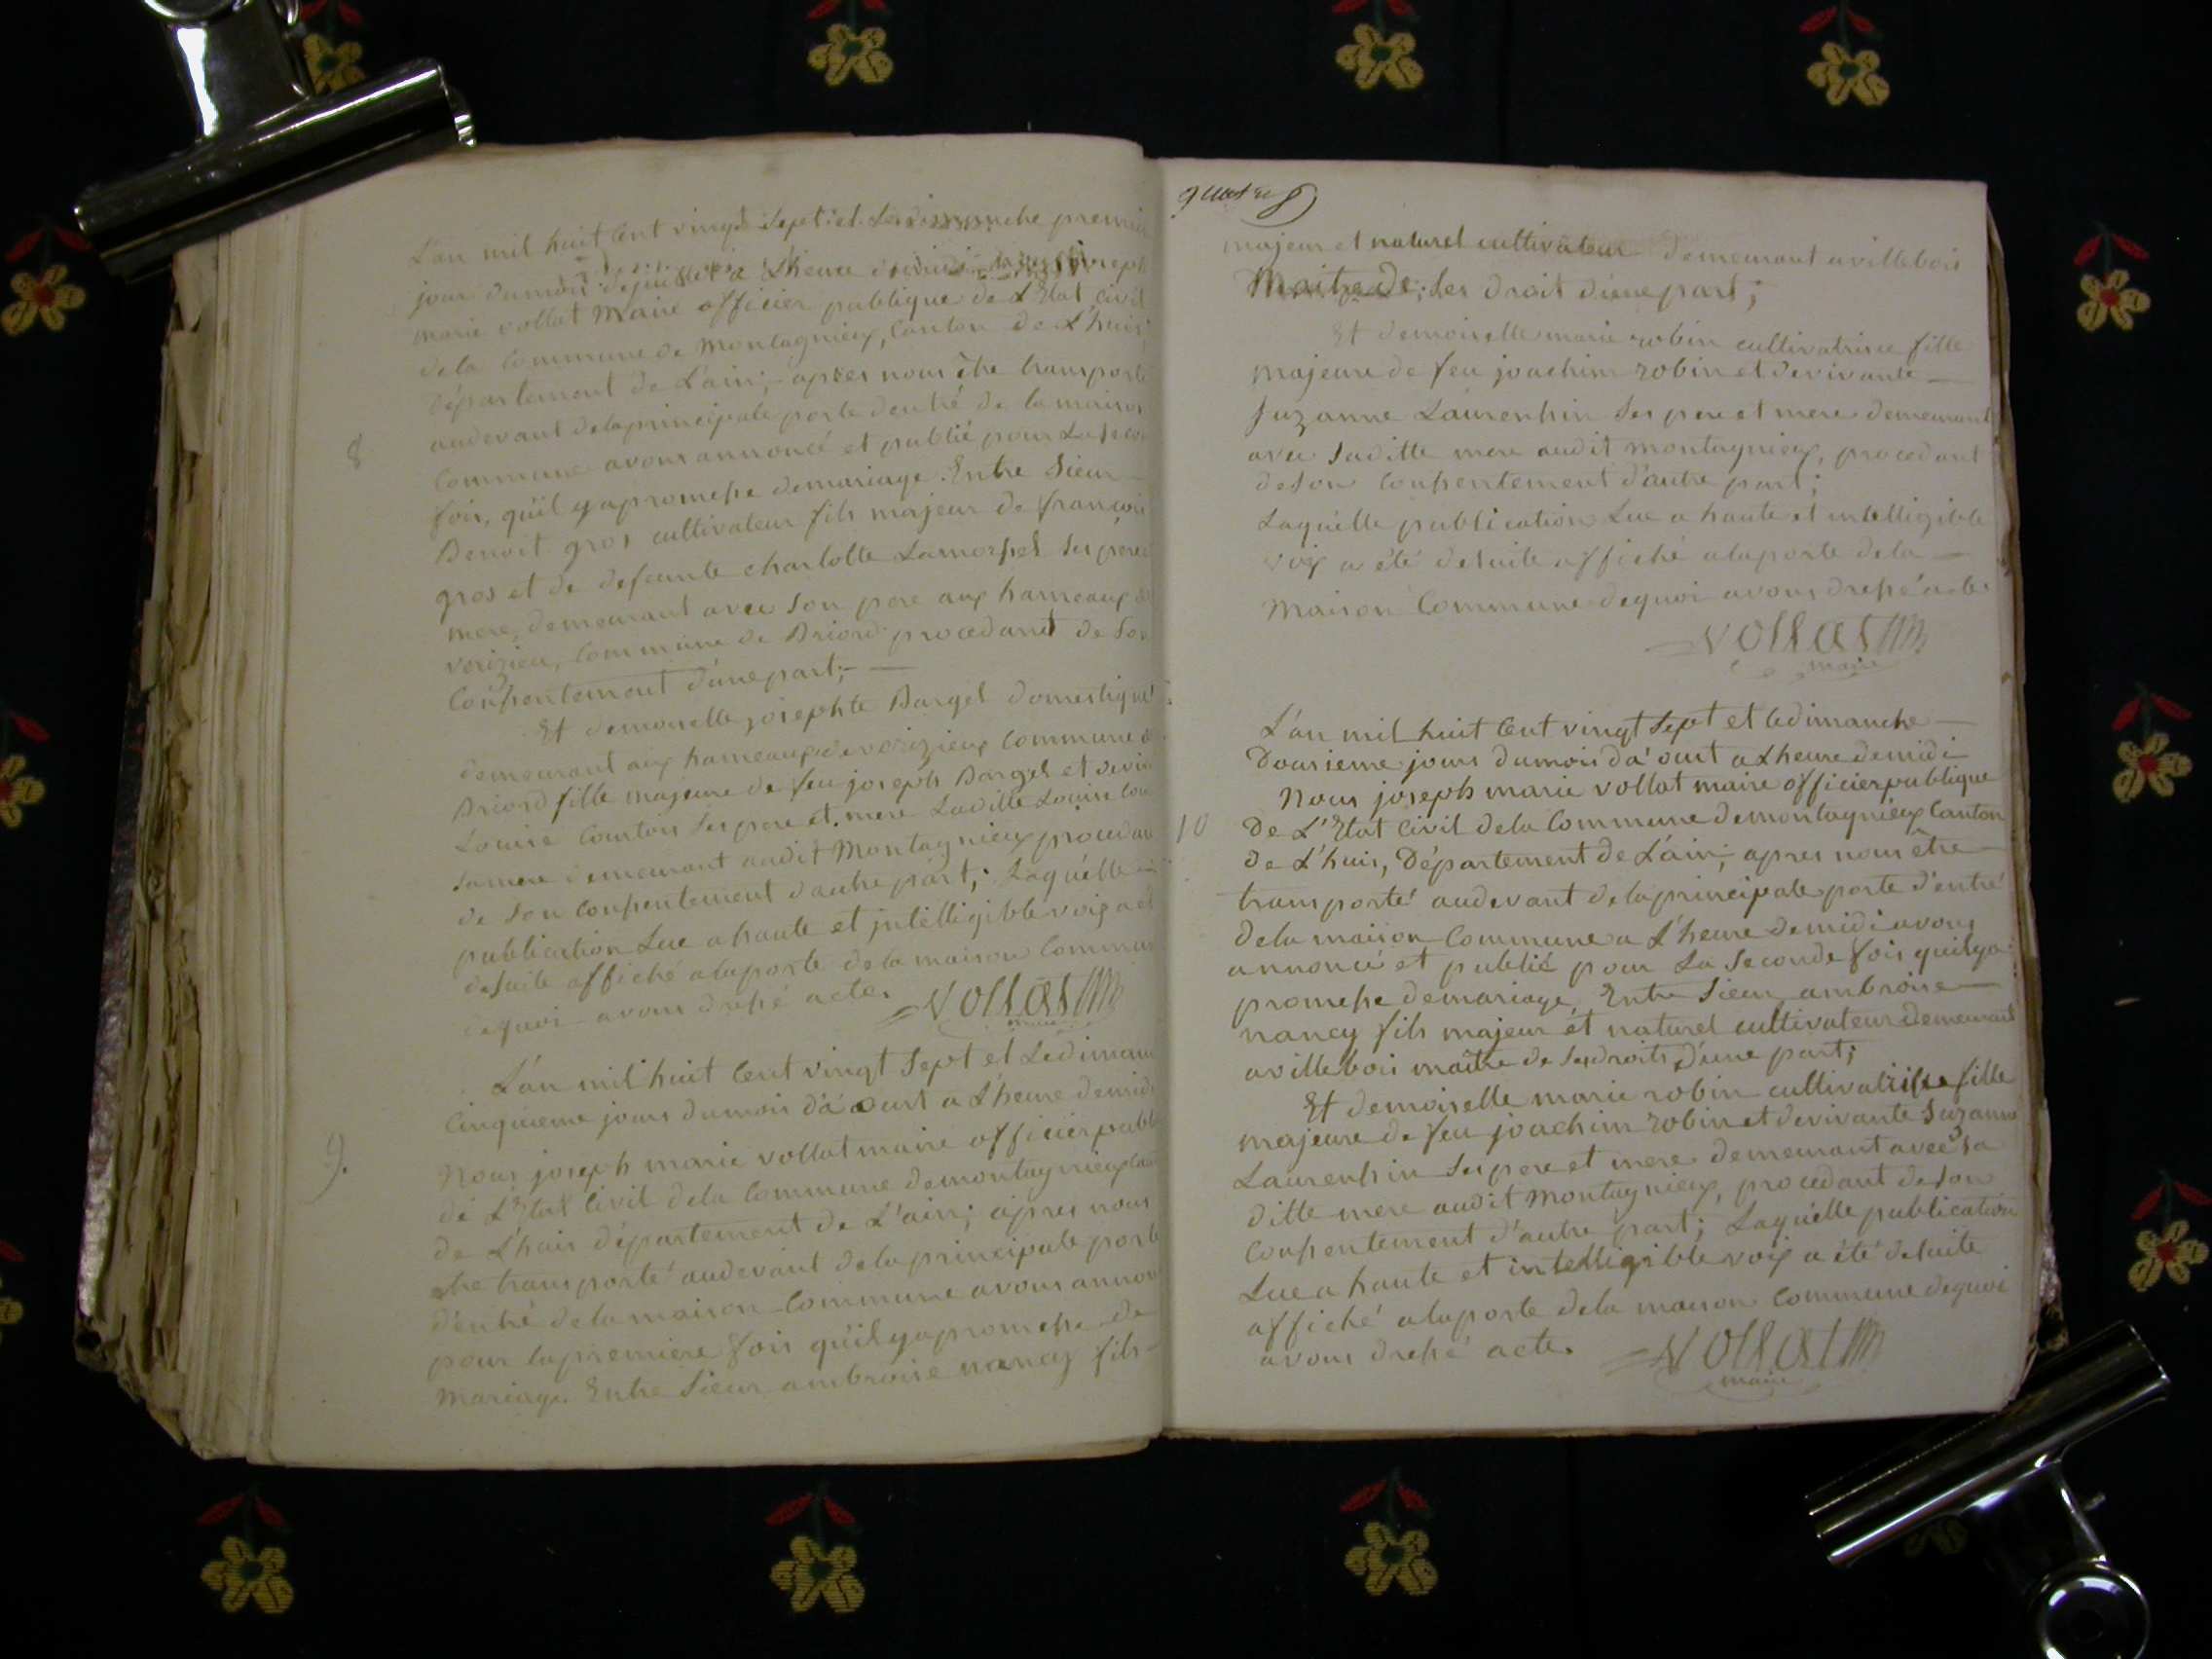 L'an mil huit Cent vingt Sept et Le dimanche premier
jour du mois de juillet a L'heure de midi nous joseph
marie vollat Maire officier publique de L'Etat civil
de la Commune de Montagnieux, Canton de L'huis,
département de L'ain; apres nous être transporté
audevant de la principale porte dentré de la maison
8
Commune avons annoncé et publié pour La secon
fois, qu'il y a promesse de mariage. Entre Sieur
Benoit gros cultivateur fils majeur de francois
gros et de defeunte charlotte Lamorsel ses pere
mere, demeurant avec Son pere aux hameaux de
verizieu, Commune de Briord procedant de Son
Consentement d'une part;
Et demoiselle josephte Bargel domestique
demeurant aux hameaux de verizieux Commune de
Briord fille majeure de feu joseph Bargel et de viv
Louise Courton Ses pere et mere Laditte Louise Cou
Sa mere demeurant audit Montagnieux procedant
de Son Consentement d'autre part; Laquélle
publication Lue a haute et jntelligible voix a ét
desuite affiché a la porte de la maison Commun
dequoi avons dressé acte. Vollat
maire
L'an mil huit Cent vingt Sept et Le diman
Cinquieme jours du mois d'a oust a L'heure de midi
9.
Nous joseph marie vollat maire officier publi
de L'Etat Civil de la Commune de montagnieux Can
de L'huis département de L'ain; apres nous
etre transporté audevant de la principale porte
d'entré de la maison Commune avons annon
pour la premiere fois qu'il y a promesse de
mariage. Entre Sieur ambroise nancy fils
majeur et naturel cultivateur demeurant a villebois
Maitre de Ses droit d'une part;
Et demoiselle marie robin cultivatrice fille
majeure de feu joachim robin et de vivante
Suzanne Laurensin Ses pere et mere demeurant
avec Saditte mere audit montagnieux, procedant
de Son Consentement d'autre part;
Laquélle publication Lue a haute et intelligible
voix a été desuite affiché a la porte de la
maison Commune dequoi avons dressé acte
Vollat
maire
L'an mil huit Cent vingt Sept et le dimanche
Dousieme jours du mois d'a'oust a L'heure de midi
Nous joseph marie vollat maire officier publique
10
de L'Etat Civil de la Commune de montagnieux Canton
de L'huis, Département de L'ain; apres nous être
transporté audevant de la principale porte d'entré
de la maison Commune a L'heure de midi avons
annoncé et publié pour La Seconde fois quil y a
promesse de mariage, Entre Sieur ambroise
nancy fils majeur et naturel cultivateur demeurant
a villebois maître de Ses droits d'une part;
Et demoiselle marie robin cultivatrisse fille
majeure de feu joachim robin et de vivante Suzanne
Laurensin Ses pere et mere demeurant avec Sa
ditte mere audit montagnieux, procedant de Son
Consentement d'autre part; Laquélle publication
Lue a haute et intelligible voix a été desuite
affiché a la porte de la maison Commune dequoi
avons dressé acte. Vollat
maire